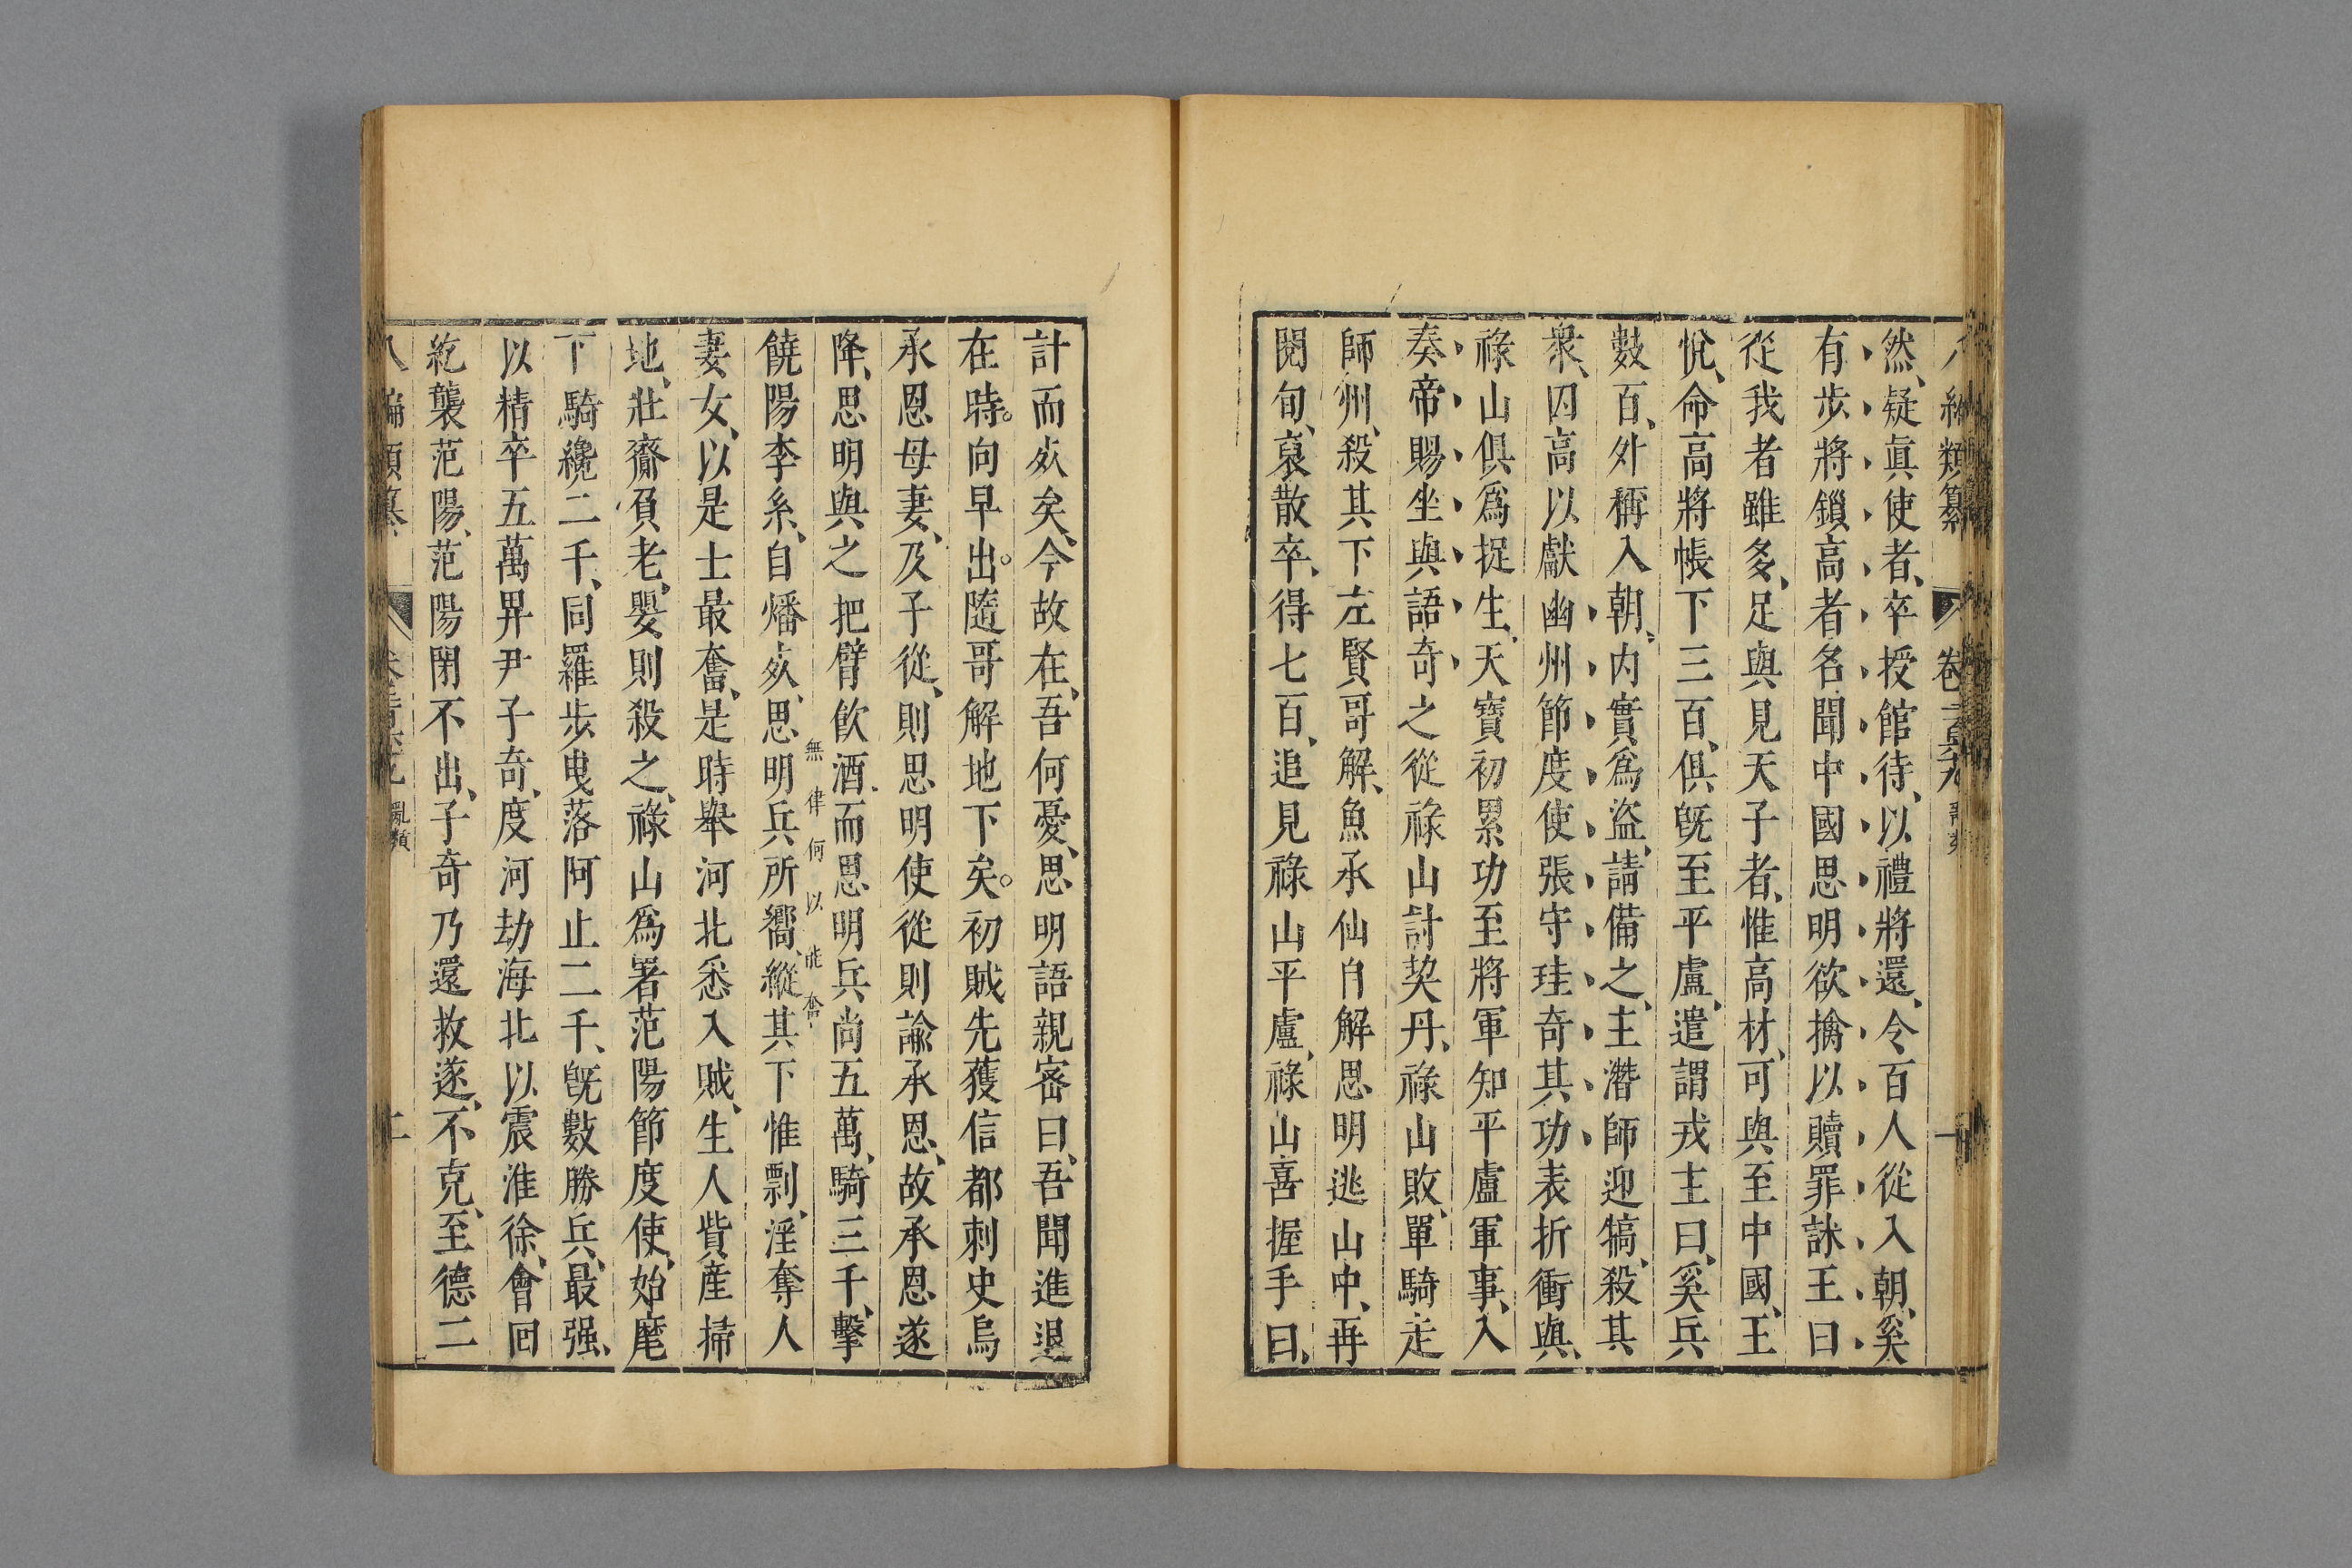 八編類纂 卷二百
然、疑眞使者、卒授館待、以禮將還、令百人從入朝、奚
有步將鎖高者名聞中國思明欲擒以贖罪訹王曰
從我者雖多、足與見天子者、惟高材、可與至中國、王
悅、命高將帳下三百、俱旣至平盧、遣謂戎主曰、奚兵
數百、外稱入朝、内實爲盜、請備之、主潛師迎犒、殺其
衆、囚高以獻幽州節度使張守珪奇其功表折衝與、
祿山俱爲捉生、天寶初累功至將軍知平盧軍事、入
奏帝賜坐與語奇之從祿山討契丹、祿山敗、單騎走
師州、殺其下左賢哥解、魚承仙自解思明逃山中、再
閱旬、裒散卒、得七百、追見祿山平盧、祿山喜握手曰、
計而歿矣、今故在、吾何憂、思明語親密曰、吾聞進退
在時。向早出。隨哥解地下矣。初賊先獲信都刺史烏
承恩母妻、及子從、則思明使從則諭承恩、故承恩遂
降、思明與之把臂飲酒、而思明兵尚五萬、騎三千、擊
無律何以能奮
饒陽李系、自燔歿、思明兵所嚮、縱其下惟剽、淫奪人
妻女、以是士最奮、是時舉河北悉入賊、生人貲產掃
地、壯齎負老、嬰則殺之、祿山爲署范陽節度使、始麾
下騎纔二千、同羅步曳落阿止二千、旣數勝兵、最强、
以精卒五萬畀尹子奇、度河劫海北以震淮徐、會回
紇襲范陽、范陽閉不出、子奇乃還救遂、不克、至德二
八編類纂 亂類